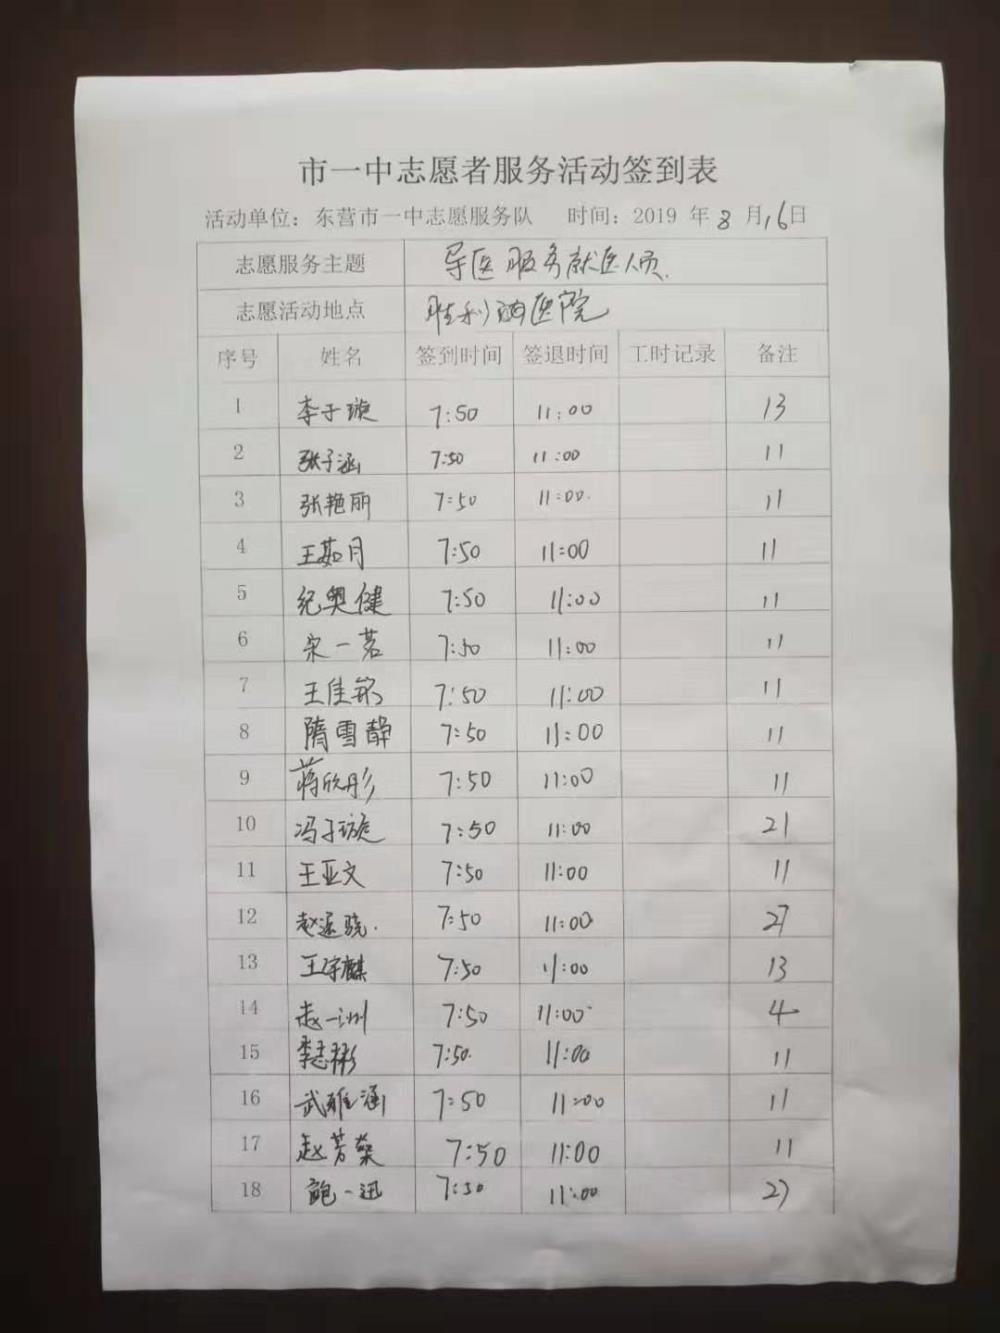 市一中志愿者服务活动签到表
活动单位：东营市一中志愿服务队 时间：2019 年 8 月 16 日
志愿服务主题 导医服务就医人员.
志愿活动地点 胜利油医院
序号 姓名 签到时间 签退时间 工时记录 备注
1 李子璇 7:50 11:00 13
2 张子涵 7:50 11:00 11
3 张艳丽 7:50 11:00. 11
4 王茹月 7:50 11:00 11
5 纪奥健 7:50 11:00 11
6 宋一茗 7:50 11:00 11
7 王佳铭 7:50 11:00 11
8 隋雪静 7:50 11:00 11
9 蒋欣彤 7:50 11:00 11
10 冯子璇 7:50 11:00 21
11 王亚文 7:50 11:00 11
12 赵 7:50 11:00 27
13 王宇麒 7:50 11:00 13
14 赵一洲 7:50 11:00 4
15 李志彬 7:50. 11:00 11
16 武雅涵 7:50 11:00 11
17 赵芳 7:50 11:00 11
18 一迅 7:50 11:00 27